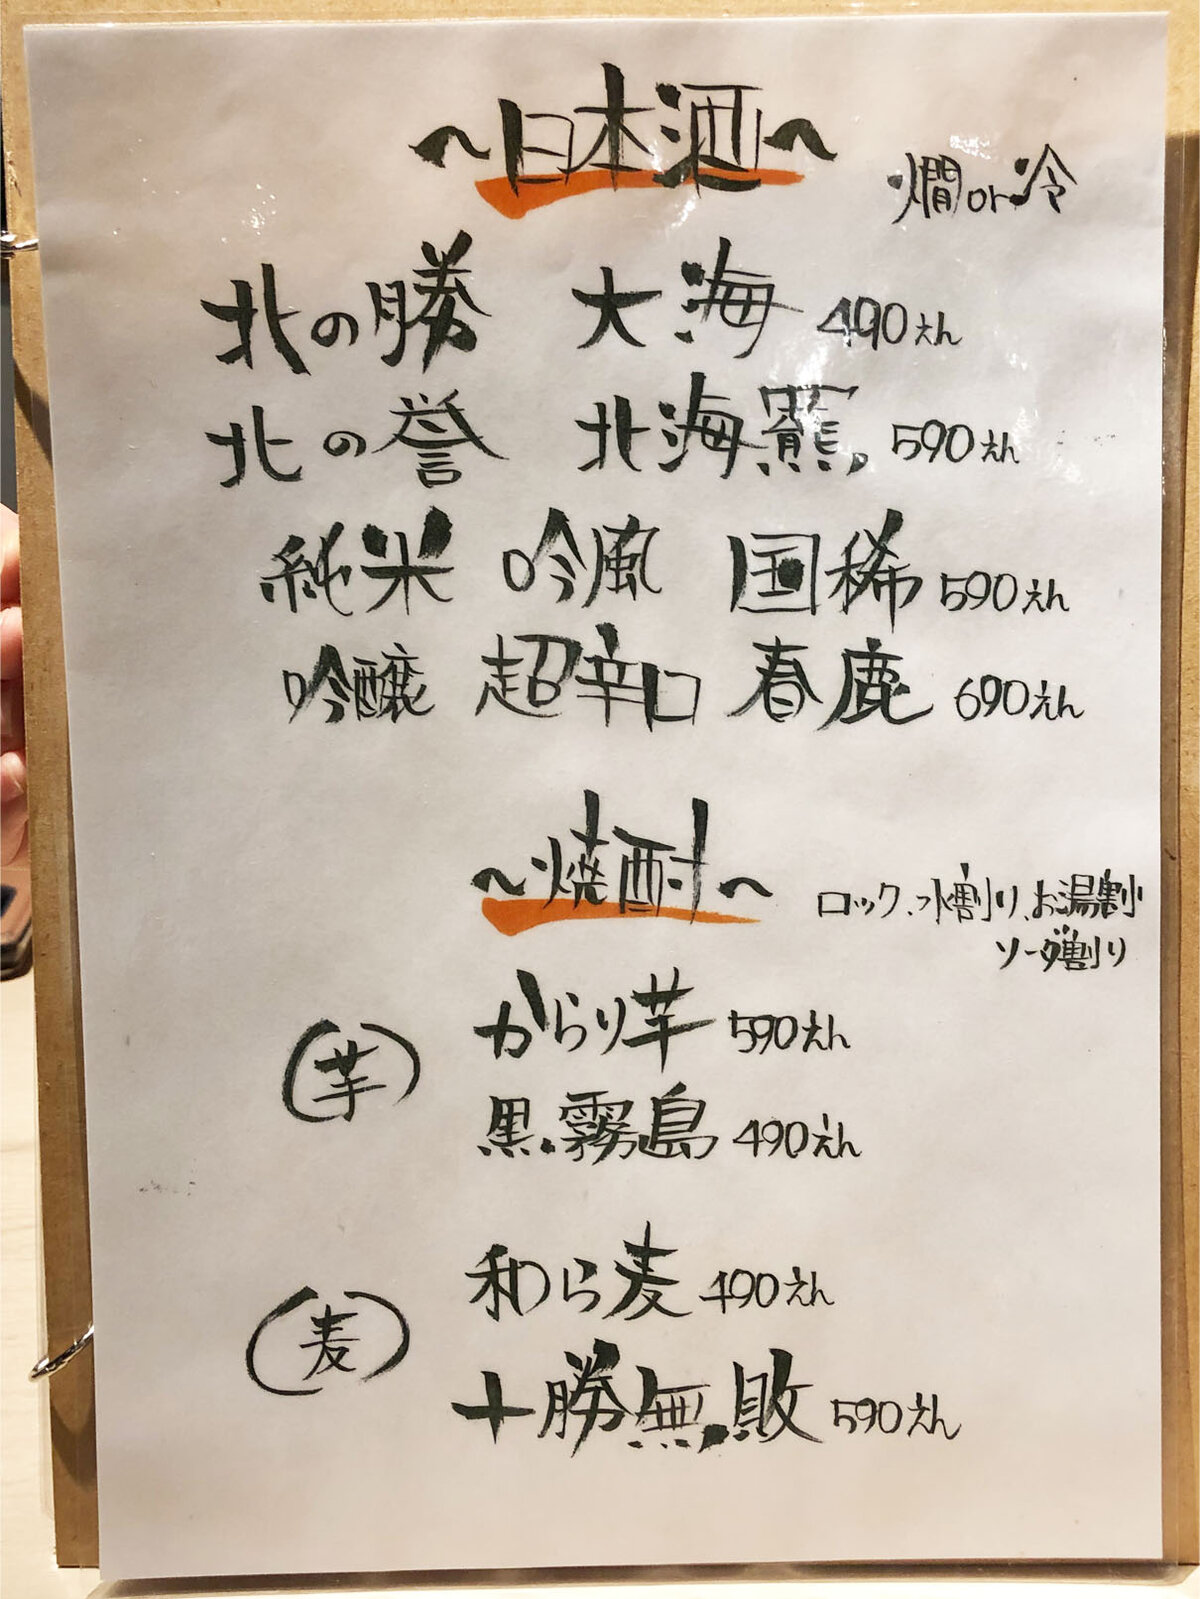 ～日本酒～
燗or冷
北の勝 大海 490えん
北の誉 北海羆 590えん
純米 吟風 国稀 590えん
吟醸 超辛口 春鹿 690えん
～焼酎～
ロック、水割り、お湯割
ソーダ割り
芋
からり芋 590えん
黒霧島 490えん
麦
和ら麦 490えん
十勝無敗 590えん